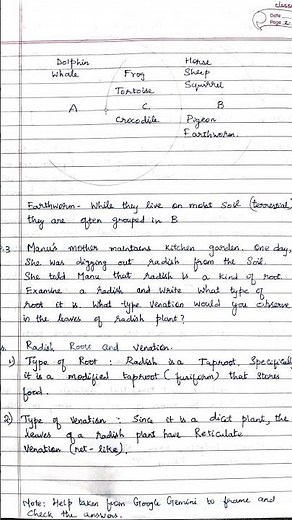 Classm
Date
Page 2
Dolphin Horse
Whale Frog Sheep
Tortoise Squirrel
A C B
Crocodile Pigeon
Earthworm
Earthworm - While they live on moist soil (terrestrial)
they are often grouped in B
.3 Manu's mother maintains kitchen garden. One day,
She was digging out radish from the Soil.
She told Manu that radish is a kind of root.
Examine a radish and write what type of
root it is. What type venation would you observe
in the leaves of radish plant?
Radish Roots and venation.
1) Type of Root : Radish is a Taproot. Specifically
it is a modified taproot (fusiform) that stores
food.
2) Type of venation : Since it is a dicot plant, the
leaves of a radish plant have Reticulate
Venation (net-like).
Note: Help taken from Google Gemini to frame and
Check the answers.